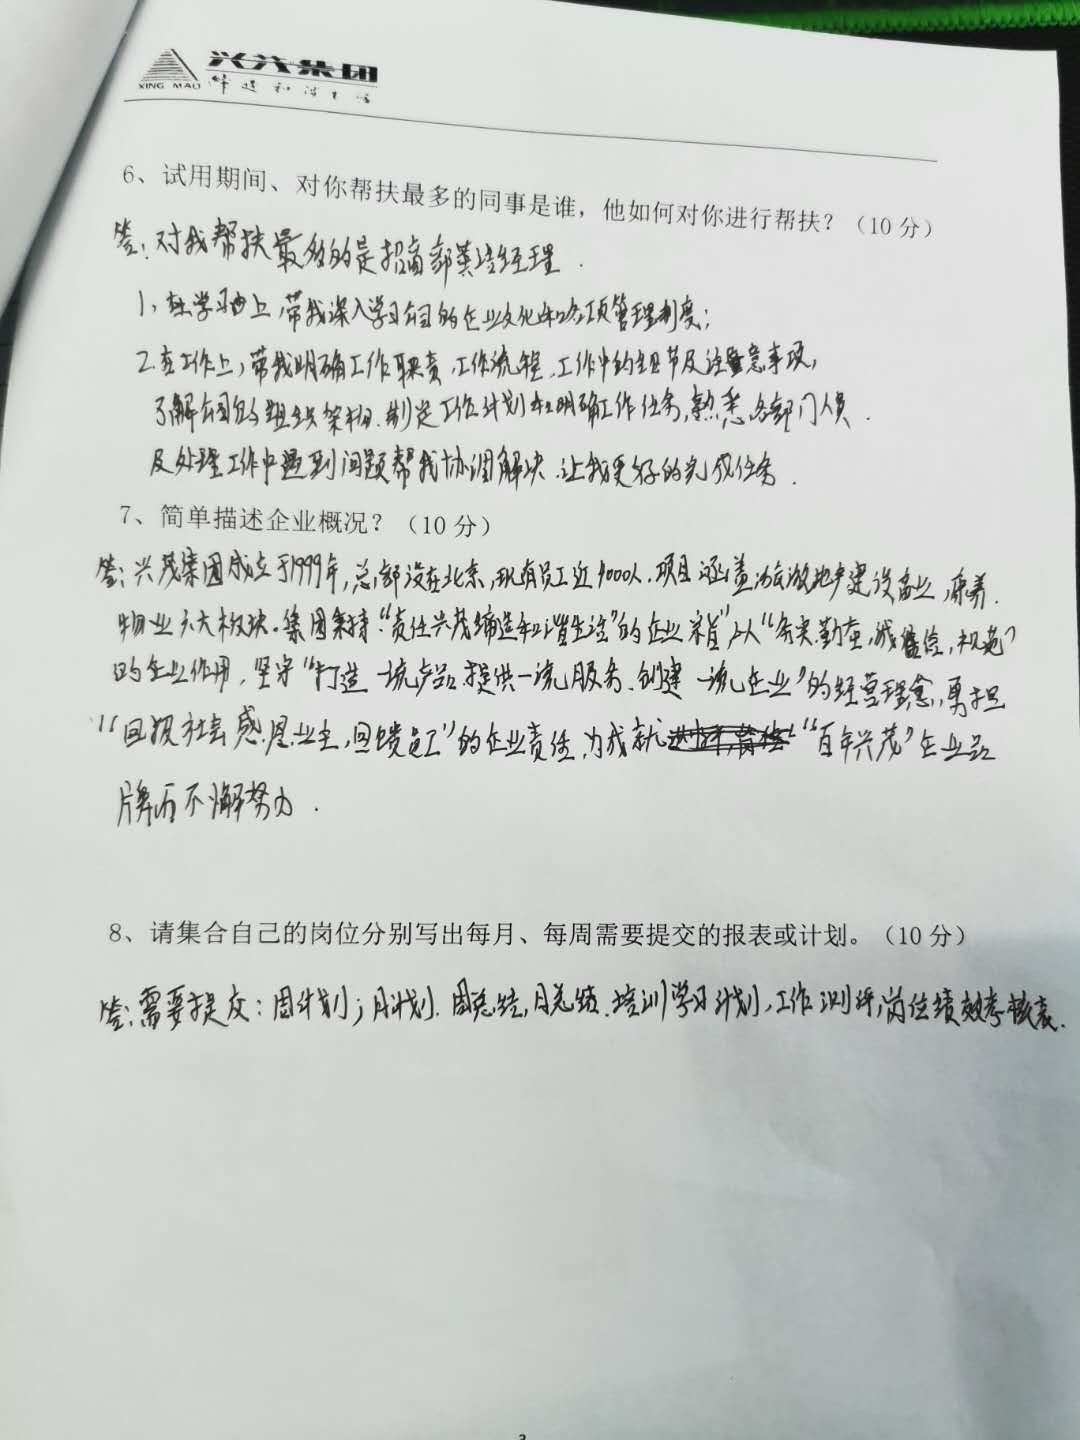 兴茂集团
XING MAO
缔造和谐生活
6、试用期间、对你帮扶最多的同事是谁，他如何对你进行帮扶？（10分）
答：对我帮扶最多的是招商部 经理.
1、在学习上,带我深入学习公司的企业文化和各项管理制度；
2.在工作上，带我明确工作职责.工作流程.工作中的细节及注意事项，
了解公司的组织架构.制定工作计划和明确工作任务,熟悉各部门人员.
及处理工作中遇到问题帮我协调解决.让我更好的完成任务.
7、简单描述企业概况？（10分）
答:兴茂集团成立于1999年,总部设在北京,现有员工近1000人.项目涵盖 地产建设商业,康养.
物业六大板块.集团秉持“责任兴茂缔造和谐生活”的企业宗旨”以“务实.勤奋,诚信,规范”
的企业作用,坚守“打造一流产品.提供一流服务.创建一流企业”的经营理念,勇担
“回报社会.感恩业主,回馈员工”的企业责任.为成就“百年兴茂”企业品
牌而不懈努力.
8、请集合自己的岗位分别写出每月、每周需要提交的报表或计划。（10分）
答:需要提交：周计划；月计划.周总结,月总结.培训学习计划,工作测评,岗位绩效考核表.
3